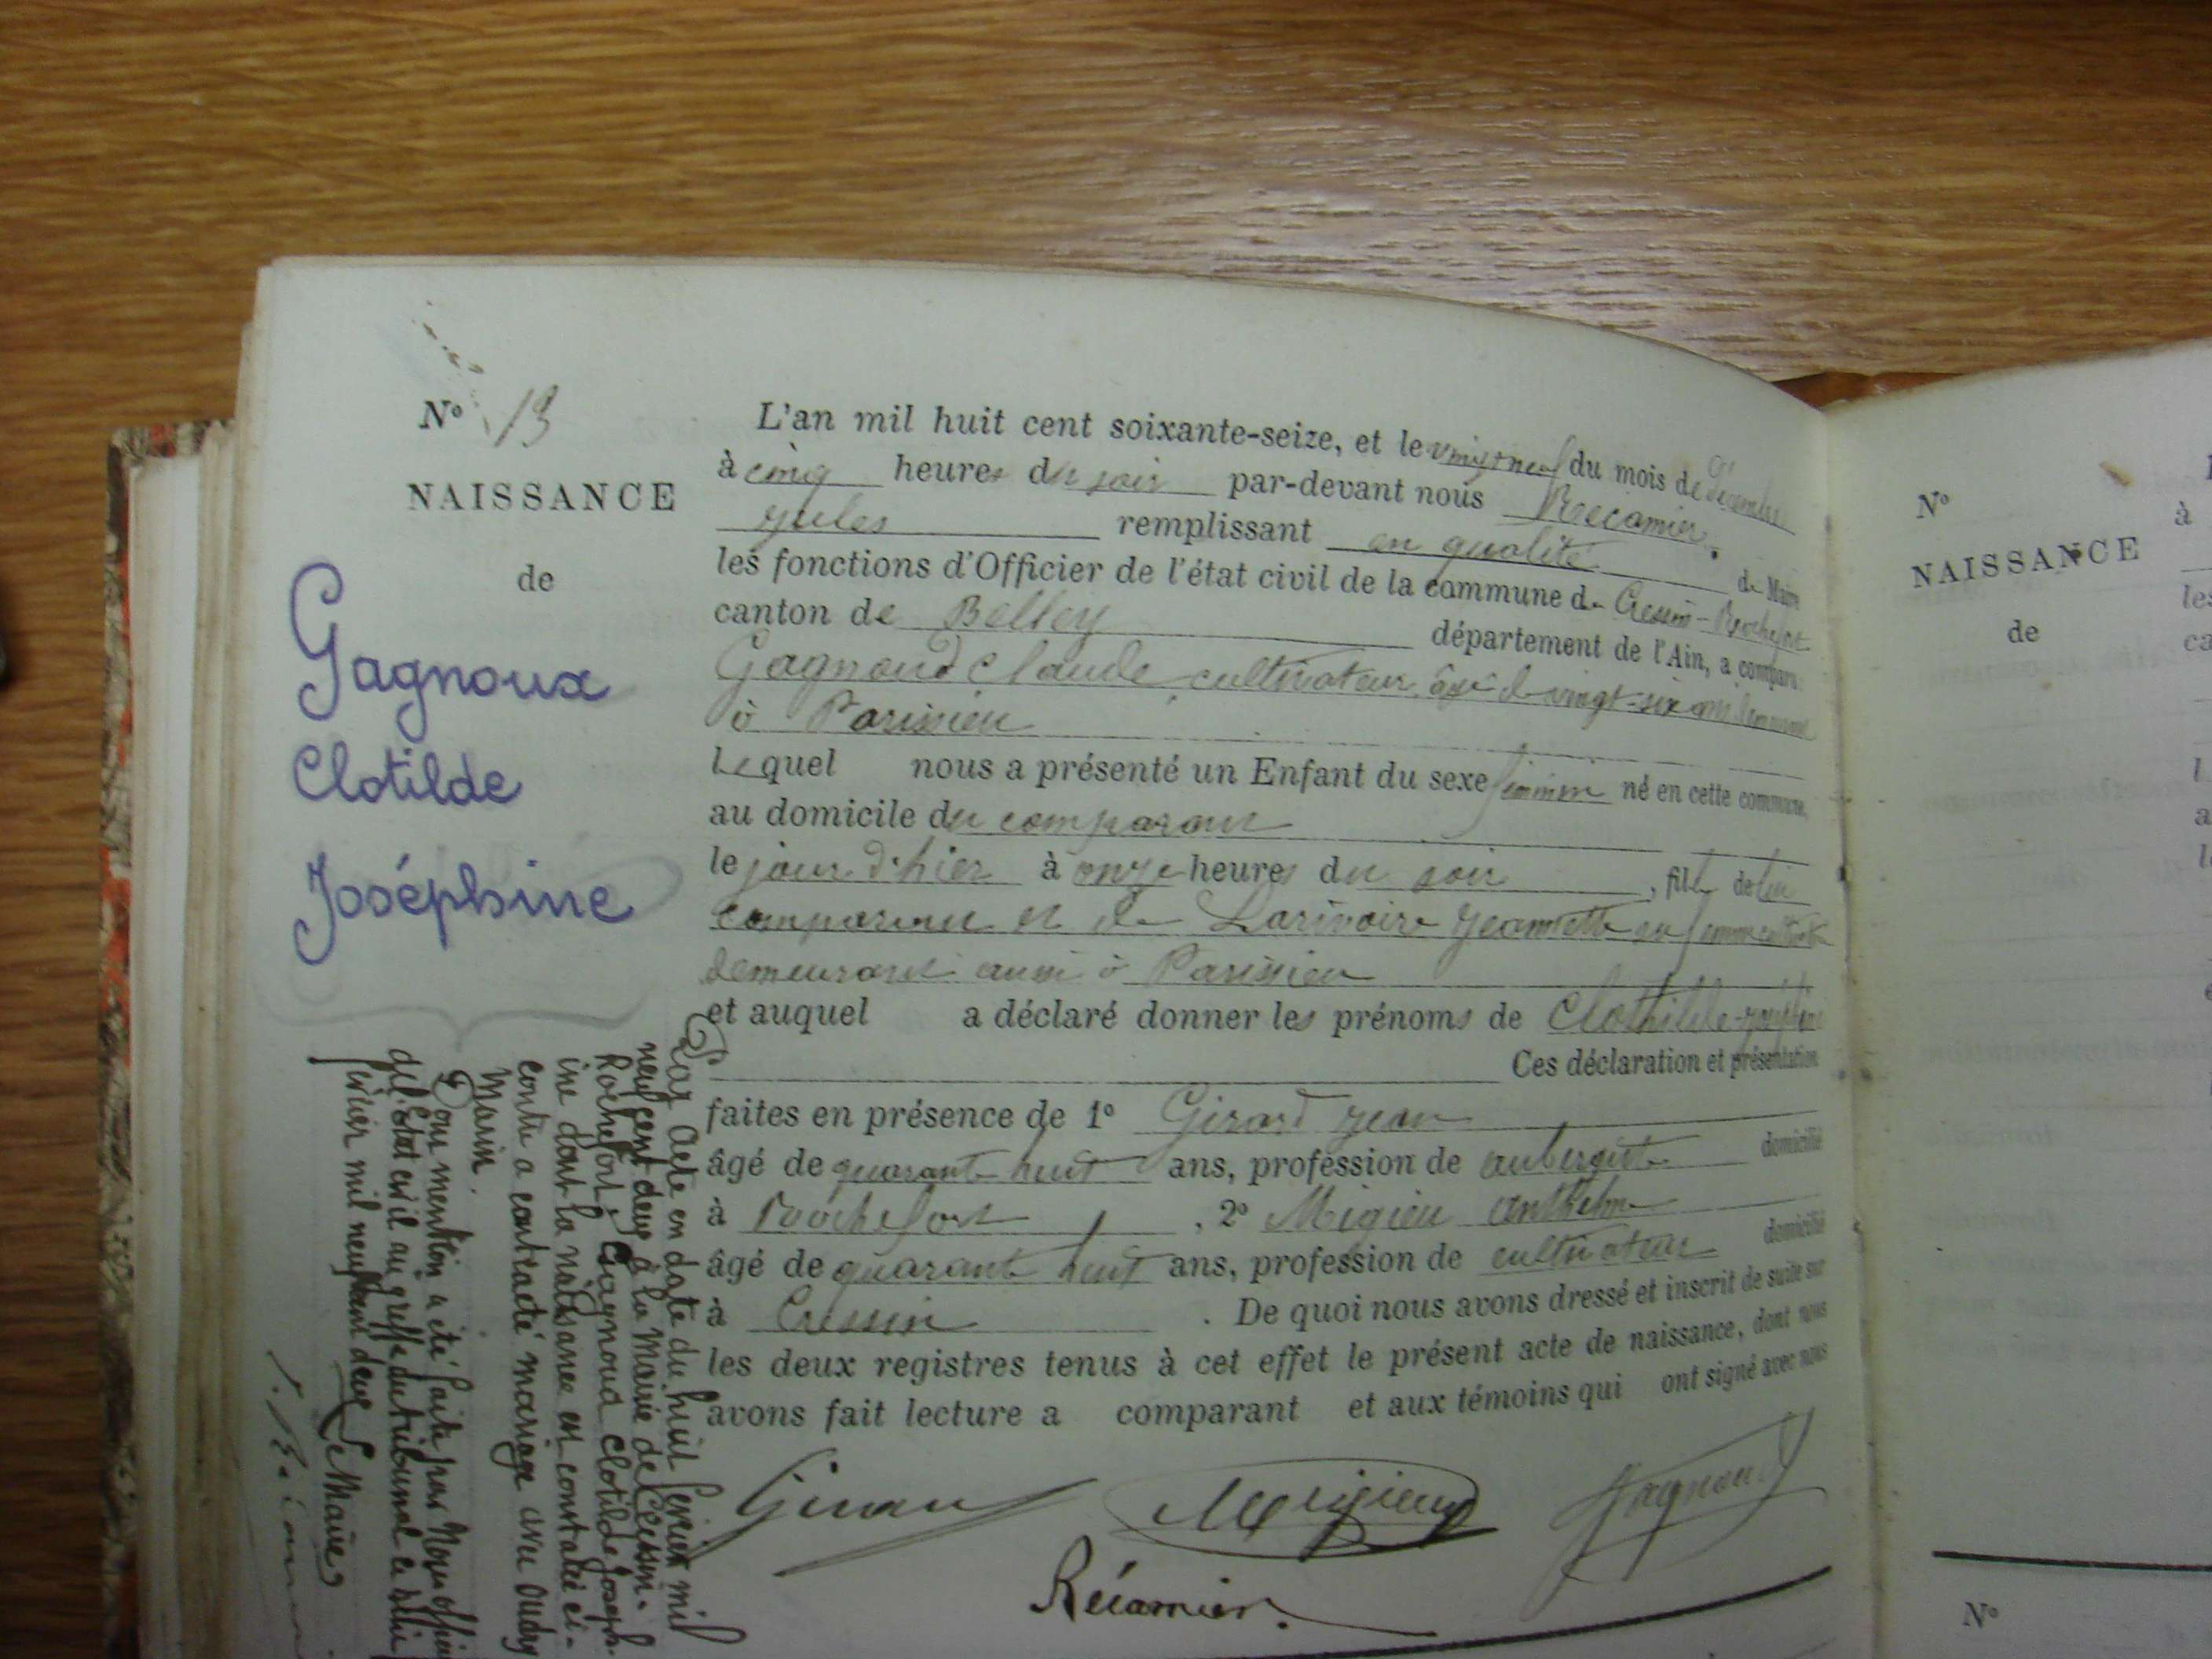 N° 13
NAISSANCE
de
Gagnoux
Clotilde
Joséphine
L'an mil huit cent soixante-seize, et le vingt neuf du mois de Décembre
à cinq heures du soir par-devant nous Récamier
Jules remplissant en qualité de Maire
les fonctions d'Officier de l'état civil de la commune de Cressin-Rochefort
canton de Belley département de l'Ain, a comparu
Gagnoud Claude cultivateur âgé de vingt-six ans demeurant
à Parissieu
Lequel nous a présenté un Enfant du sexe féminin né en cette commune,
au domicile du comparant
le jour d'hier à onze heures du soir, fille de lui
comparant et de Larivoire Jeannette sa femme
demeurant aussi à Parissieu
et auquel a déclaré donner les prénoms de Clothilde-Joséphine
Ces déclaration et présentation
faites en présence de 1° Girard Jean
âgé de quarante huit ans, profession de aubergiste domicilié
à Rochefort, 2° Migieu Anthelme
âgé de quarante huit ans, profession de cultivateur domicilié
à Cressin. De quoi nous avons dressé et inscrit de suite sur
les deux registres tenus à cet effet le présent acte de naissance, dont nous
avons fait lecture a comparant et aux témoins qui ont signé avec nous
Girard Migieux Gagnoud
Récamier.
Par Acte en date du huit février mil
neuf cent deux à la Mairie de Cressin-
Rochefort, Gagnoud Clotilde Joseph-
ine dont la naissance est constatée ci-
contre a contracté mariage avec Oudry
Marin.
Dont mention a été faite par Nous officier
de l'Etat civil au greffe du tribunal
février mil neuf cent deux Le Maire
J. Récamier
N°
NAISSANCE
de
à
N°